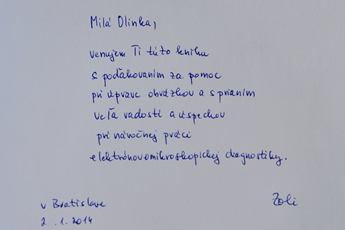 Milá Olinka,
venujem Ti túto knihu
s poďakovaním za pomoc
pri úprave obrázkov a s prianím
veľa radosti a úspechov
pri náročnej práci
elektrónovomikroskopickej diagnostiky.
v Bratislave
2.1.2014
Zoli